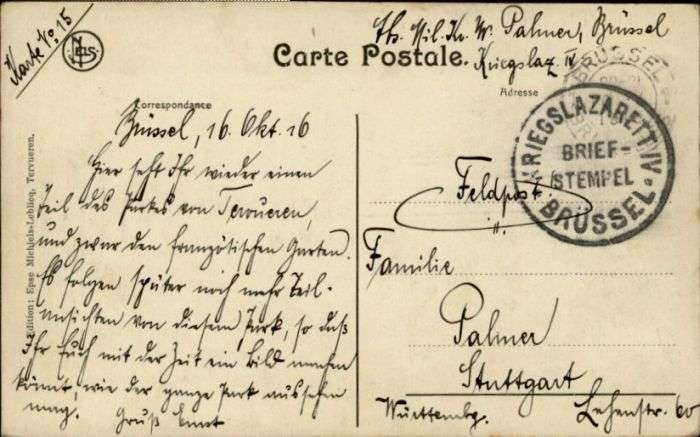 Karte No. 15
Abs. Mil. Kr. W. Palmer, Brüssel
Kriegslaz IV
Carte Postale.
Correspondance
Adresse
Brüssel, 16. Okt. 16
Hier seht Ihr wieder einen
Teil des Parkes von Tervueren,
und zwar den französischen Garten.
Es folgen später noch mehr Teil-
ansichten von diesem Park, so daß
Ihr Euch mit der Zeit ein Bild machen
könnt, wie der ganze Park aussehen
mag.
Gruß Ernst
Edition: Epse Michiels-Leblicq, Tervueren.
BRÜSSEL
KRIEGSLAZARETT IV.
BRIEF-
STEMPEL
BRÜSSEL
Feldpost
Familie
Palmer
Stuttgart
Württembg.
Lehenstr. 60